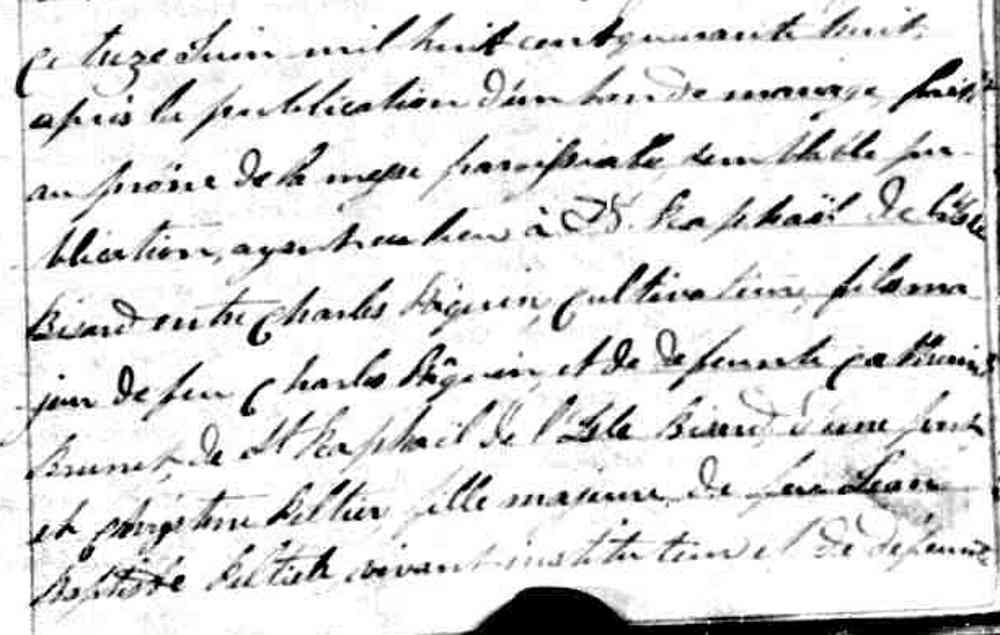 Ce treize Juin mil huit cent quarante huit,
après la publication d'un ban de mariage faite
au prône de la messe paroissiale, semblable pu-
blication, ayant eu lieu à St. Raphaël de l'Isle
Bizard entre Charles cultivateur, fils ma-
jeur de feu Charles et de defunte Catherine
Brunet, de St Raphaël de l'Isle Bizard d'une part
et Christine Peltier fille majeure de feu Jean
Baptiste Peltier vivant instituteur et de defunte